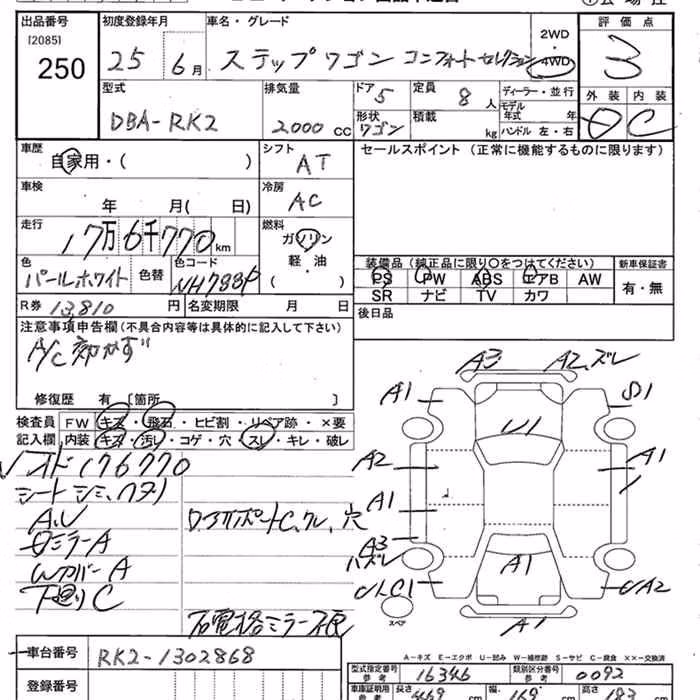 出品番号 [2085] 250
初度登録年月 25年6月
車名・グレード ステップワゴン コンフォートセレクション 2WD 4WD
評価点 3
外装 内装 C
型式 DBA-RK2
排気量 2000 cc
ドア 5
定員 8人
形状 ワゴン
積載 kg
ディーラー・並行
モデル年式 年
ハンドル 左・右
車歴 自家用・( )
シフト AT
セールスポイント (正常に機能するものに限ります)
車検 年 月( 日)
冷房 AC
走行 17万6千770km
燃料 ガソリン 軽・油 ( )
色 パールホワイト 色替
色コード NH788P
装備品(純正品に限り〇をつけてください)
PS PW ABS エアB AW
SR ナビ TV カワ
新車保証書 有・無
R券 13,810円
名変期限 月 日
後日品
注意事項申告欄(不具合内容等は具体的に記入して下さい)
A/C 効かず
修復歴 有 [箇所 ]
検査員 FW キズ・飛石・ヒビ割・リペア跡・×要
記入欄 内装 キズ・汚レ・コゲ・穴・スレ・キレ・破レ
メド176770
シート シミ、ヘタリ
A、U
ミラーA
WカバーA
下廻りC
穴
右電格ミラー不良
A3 A2、ズレ
A1
U1
A2 A1
A1
A3
ハズレ
A1
UA2
スペア
A1
車台番号 RK2-1302868
登録番号
A-キズ E-エクボ U-凹み W-補修跡 S-サビ C-腐食 ××-交換済
型式指定番号 参考 16346
類別区分番号 参考 0092
車庫証明用 参考 長さ 469cm 幅 169cm 高さ 183cm